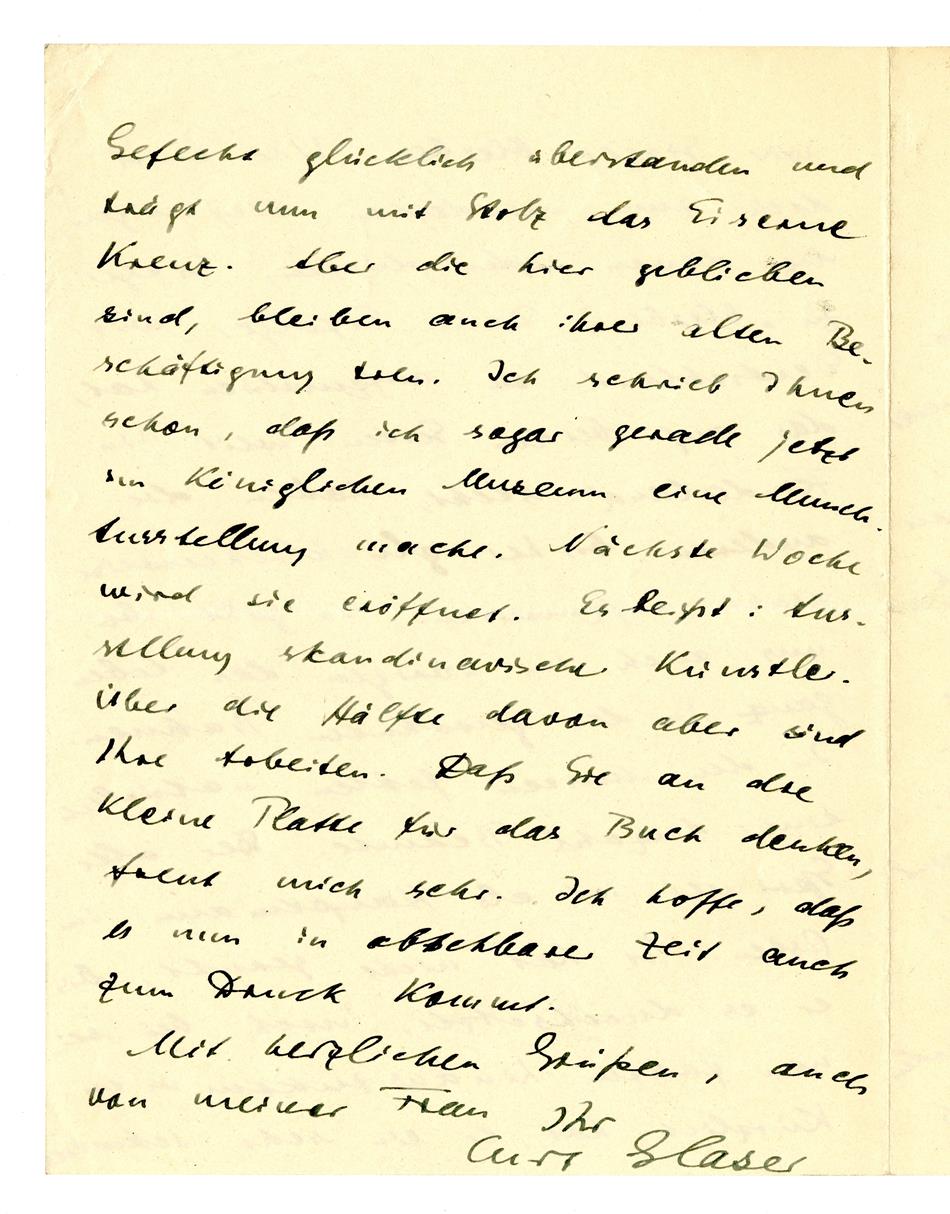 Gefecht glücklich überstanden und
trägt nun mit Stolz das Eiserne
Kreuz. Aber die hier geblieben
sind, bleiben auch ihrer alten Be-
schäftigung treu. Ich schrieb Ihnen
schon, daß ich sogar gerade jetzt
im Königlichen Museum eine Munch-
Ausstellung mache. Nächste Woche
wird sie eröffnet. Es heißt: Aus-
stellung skandinavischer Künstler.
Über die Hälfte davon aber sind
Ihre Arbeiten. Daß Sie an die
kleine Platte für das Buch denken,
freut mich sehr. Ich hoffe, daß
es nun in absehbarer Zeit auch
zum Druck kommt.
Mit herzlichen Grüßen, auch
von meiner Frau Ihr
Curt Glaser